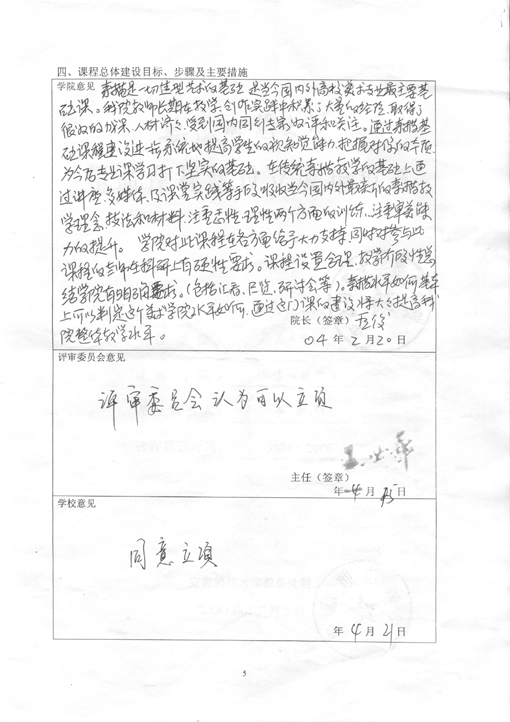 四、课程总体建设目标、步骤及主要措施
学院意见 素描是一切造型艺术的基础,是当今国内外高校美术专业最主要基
础课。我院教师长期在教学、创作实践中积累了大量的经验,取得了
很好的成果,人材济济,受到国内同行专家好评和关注。通过素描基
础课程建设进一步系统地提高学生的视知觉能力,把握对
为今后专业课学习打下坚实的基础。在传统素描教学的基础上通
过讲座、多媒体及课堂实践等手段吸收当今国内外最新的素描教
学理念、技法和材料,注重感性、理性两个方面的训练,注重审美能
力的提升。 学院对此课程在各方面给予大力支持,同时对参与此
课程的教师在科研上有硬性要求。课程设置合理,教学阶段性总
结学院有明确要求。(包括汇看、展览、研讨会等)。素描水平如何基本
上可以判定这个美术学院水平如何,通过这门课的建设将大大提高我
院整体教学水平。
院长(签章)
04 年 2 月 20 日
评审委员会意见
评审委员会认为可以立项
主任(签章)
年 4 月 15 日
学校意见
同意立项
年 4 月 21 日
5